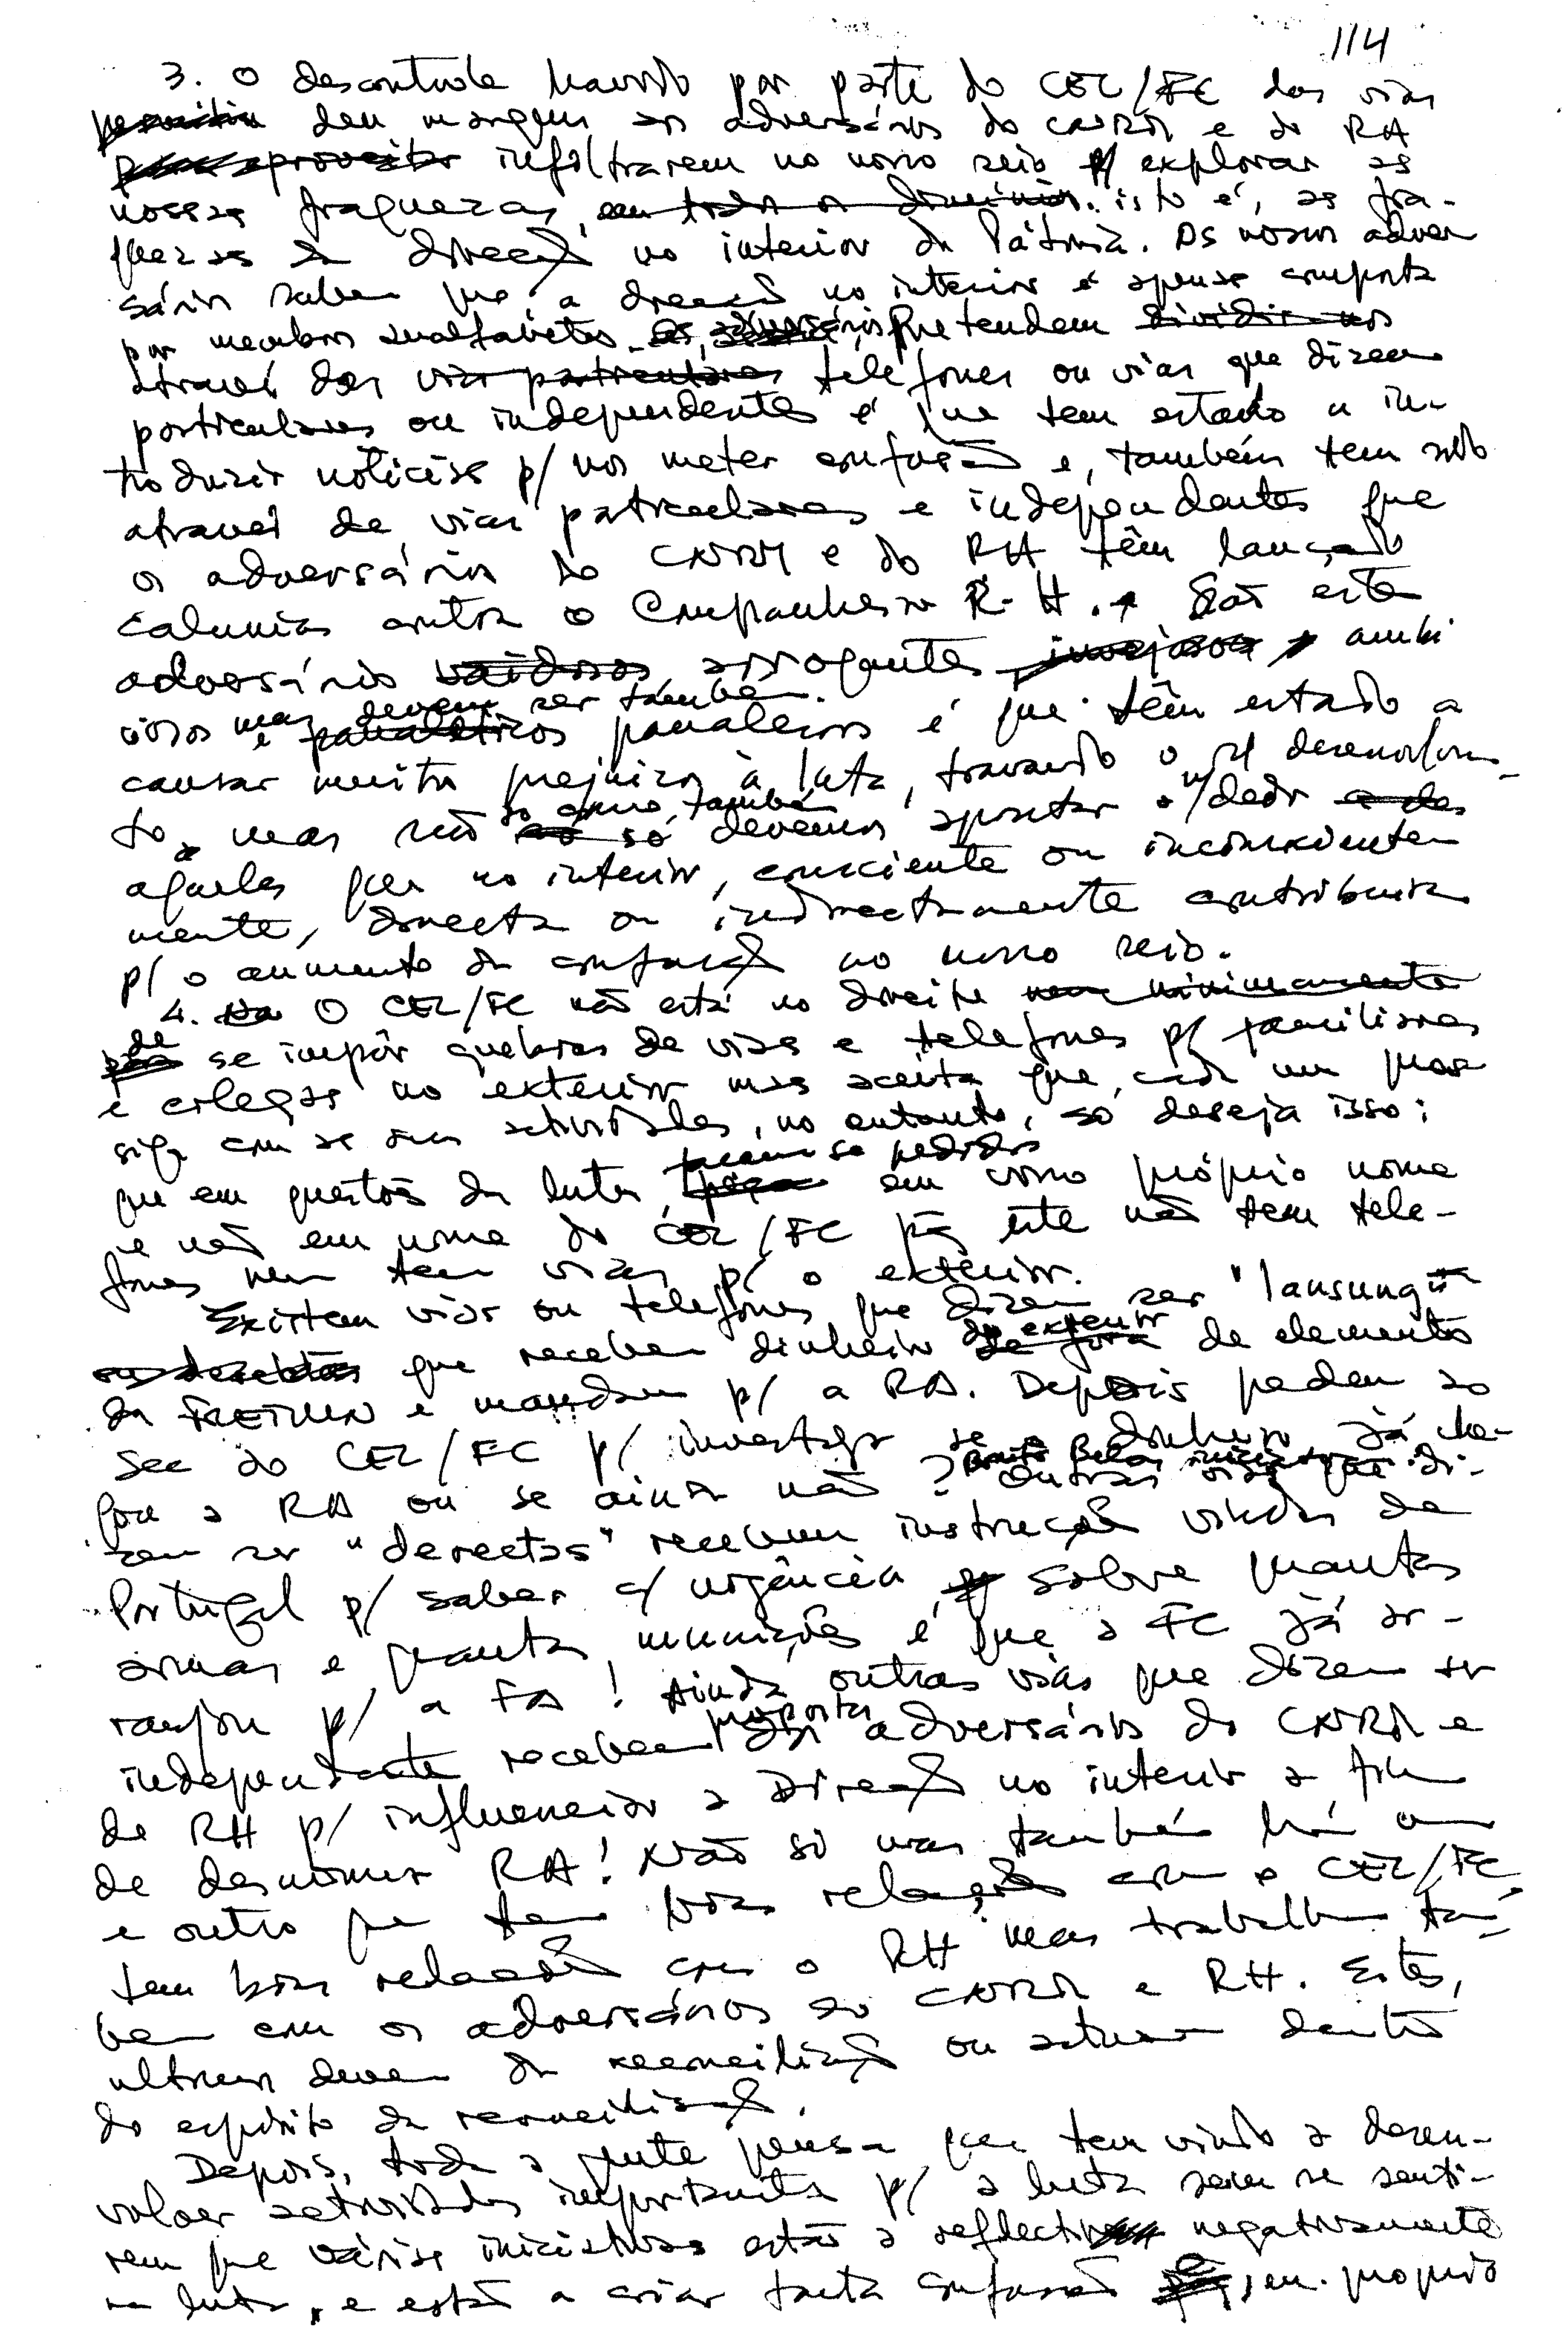 114
3. O descontrole havido por parte do CEL/FC das vias
permitiu deu margem aos adversários do CNRM e do RH
para aproveitar infiltrarem no nosso seio p/ explorar as
nossas fraquezas, em todos os domínios. isto é, as fra-
quezas da direcção no interior da Pátria. Os nossos adver
sários sabem que a direcção no interior é apenas composta
por membros analfabetos. Os adversários pretendem dividir-nos
através das vias particulares telefones ou vias que dizem
particulares ou independentes é que tem estado a in-
troduzir notícias p/ nos meter confusão e, também tem sido
através de vias particulares e independentes que
os adversários do CNRM e do RH têm lançado
calunias contra o Companheiro R. H. São estes
adversários vaidosos arrogantes invejosos, ambi
ciosos mas devem ser também.
e paralíticos é que têm estado a
causar muitos prejuízos à luta, travando o s/ desenvolvimen-
to, mas não só como, também
só devemos apontar o n/ dedo
aqueles que no interior, consciente ou inconsciente
mente, directa ou indirectamente contribuem
p/ o aumento da confusão no nosso seio.
4. O CEL/FC não está no direito nem minimamente
de se impôr quebras de vias e telefones p/ familiares
e colegas no exterior mas aceita que, cada um pros
siga com as suas actividades, no entanto, só deseja isso:
que em questões da luta, façam-se pedidos em vosso próprio nome
e não em nome do CEL/FC pq este não tem tele-
fones nem tem vias p/ o exterior.
Existem vias ou telefones que dizem ser "lansung"
que recebem dinheiro do exterior de fora de elementos
da FRETILIN e mandam p/ a RA. Depois pedem ao
Sec do CEL/FC p/ investigar se o dinheiro já che-
gou a RA ou se ainda não? Outras vias que di-
zem ser "derectas" recebem instrução vindas de
Portugal p/ saber c/ urgência sobre quantas
armas e quantas munições é que a FC já ar-
ranjou p/ a FA! Ainda outras vias que dizem ser
independente recebem propostas dos adversários do CNRM e
de RH p/ influenciar a Direcção no interior a fim
de desnomear RH! Não só mas também há um
e outro que tem boas relações com o CEL/FC,
tem boas relações com o RH mas trabalham tam-
bem com os adversários do CNRM e RH. Estes,
ultimos devem da reconciliação ou actuar dentro
do espírito da reconciliação.
Depois, toda a gente pensa que tem vindo a desen-
volver actividades importantes p/ a luta sem se senti-
rem que várias iniciativas estão a reflectir negativamente
na luta, e estão a criar tanta confusão seu próprio